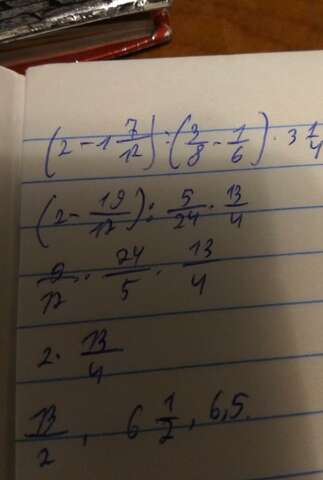 (2 - 1 7/12) : (3/8 - 1/6) · 3 1/4
(2 - 19/12) : 5/24 · 13/4
5/12 · 24/5 · 13/4
2 · 13/4
13/2, 6 1/2, 6,5.